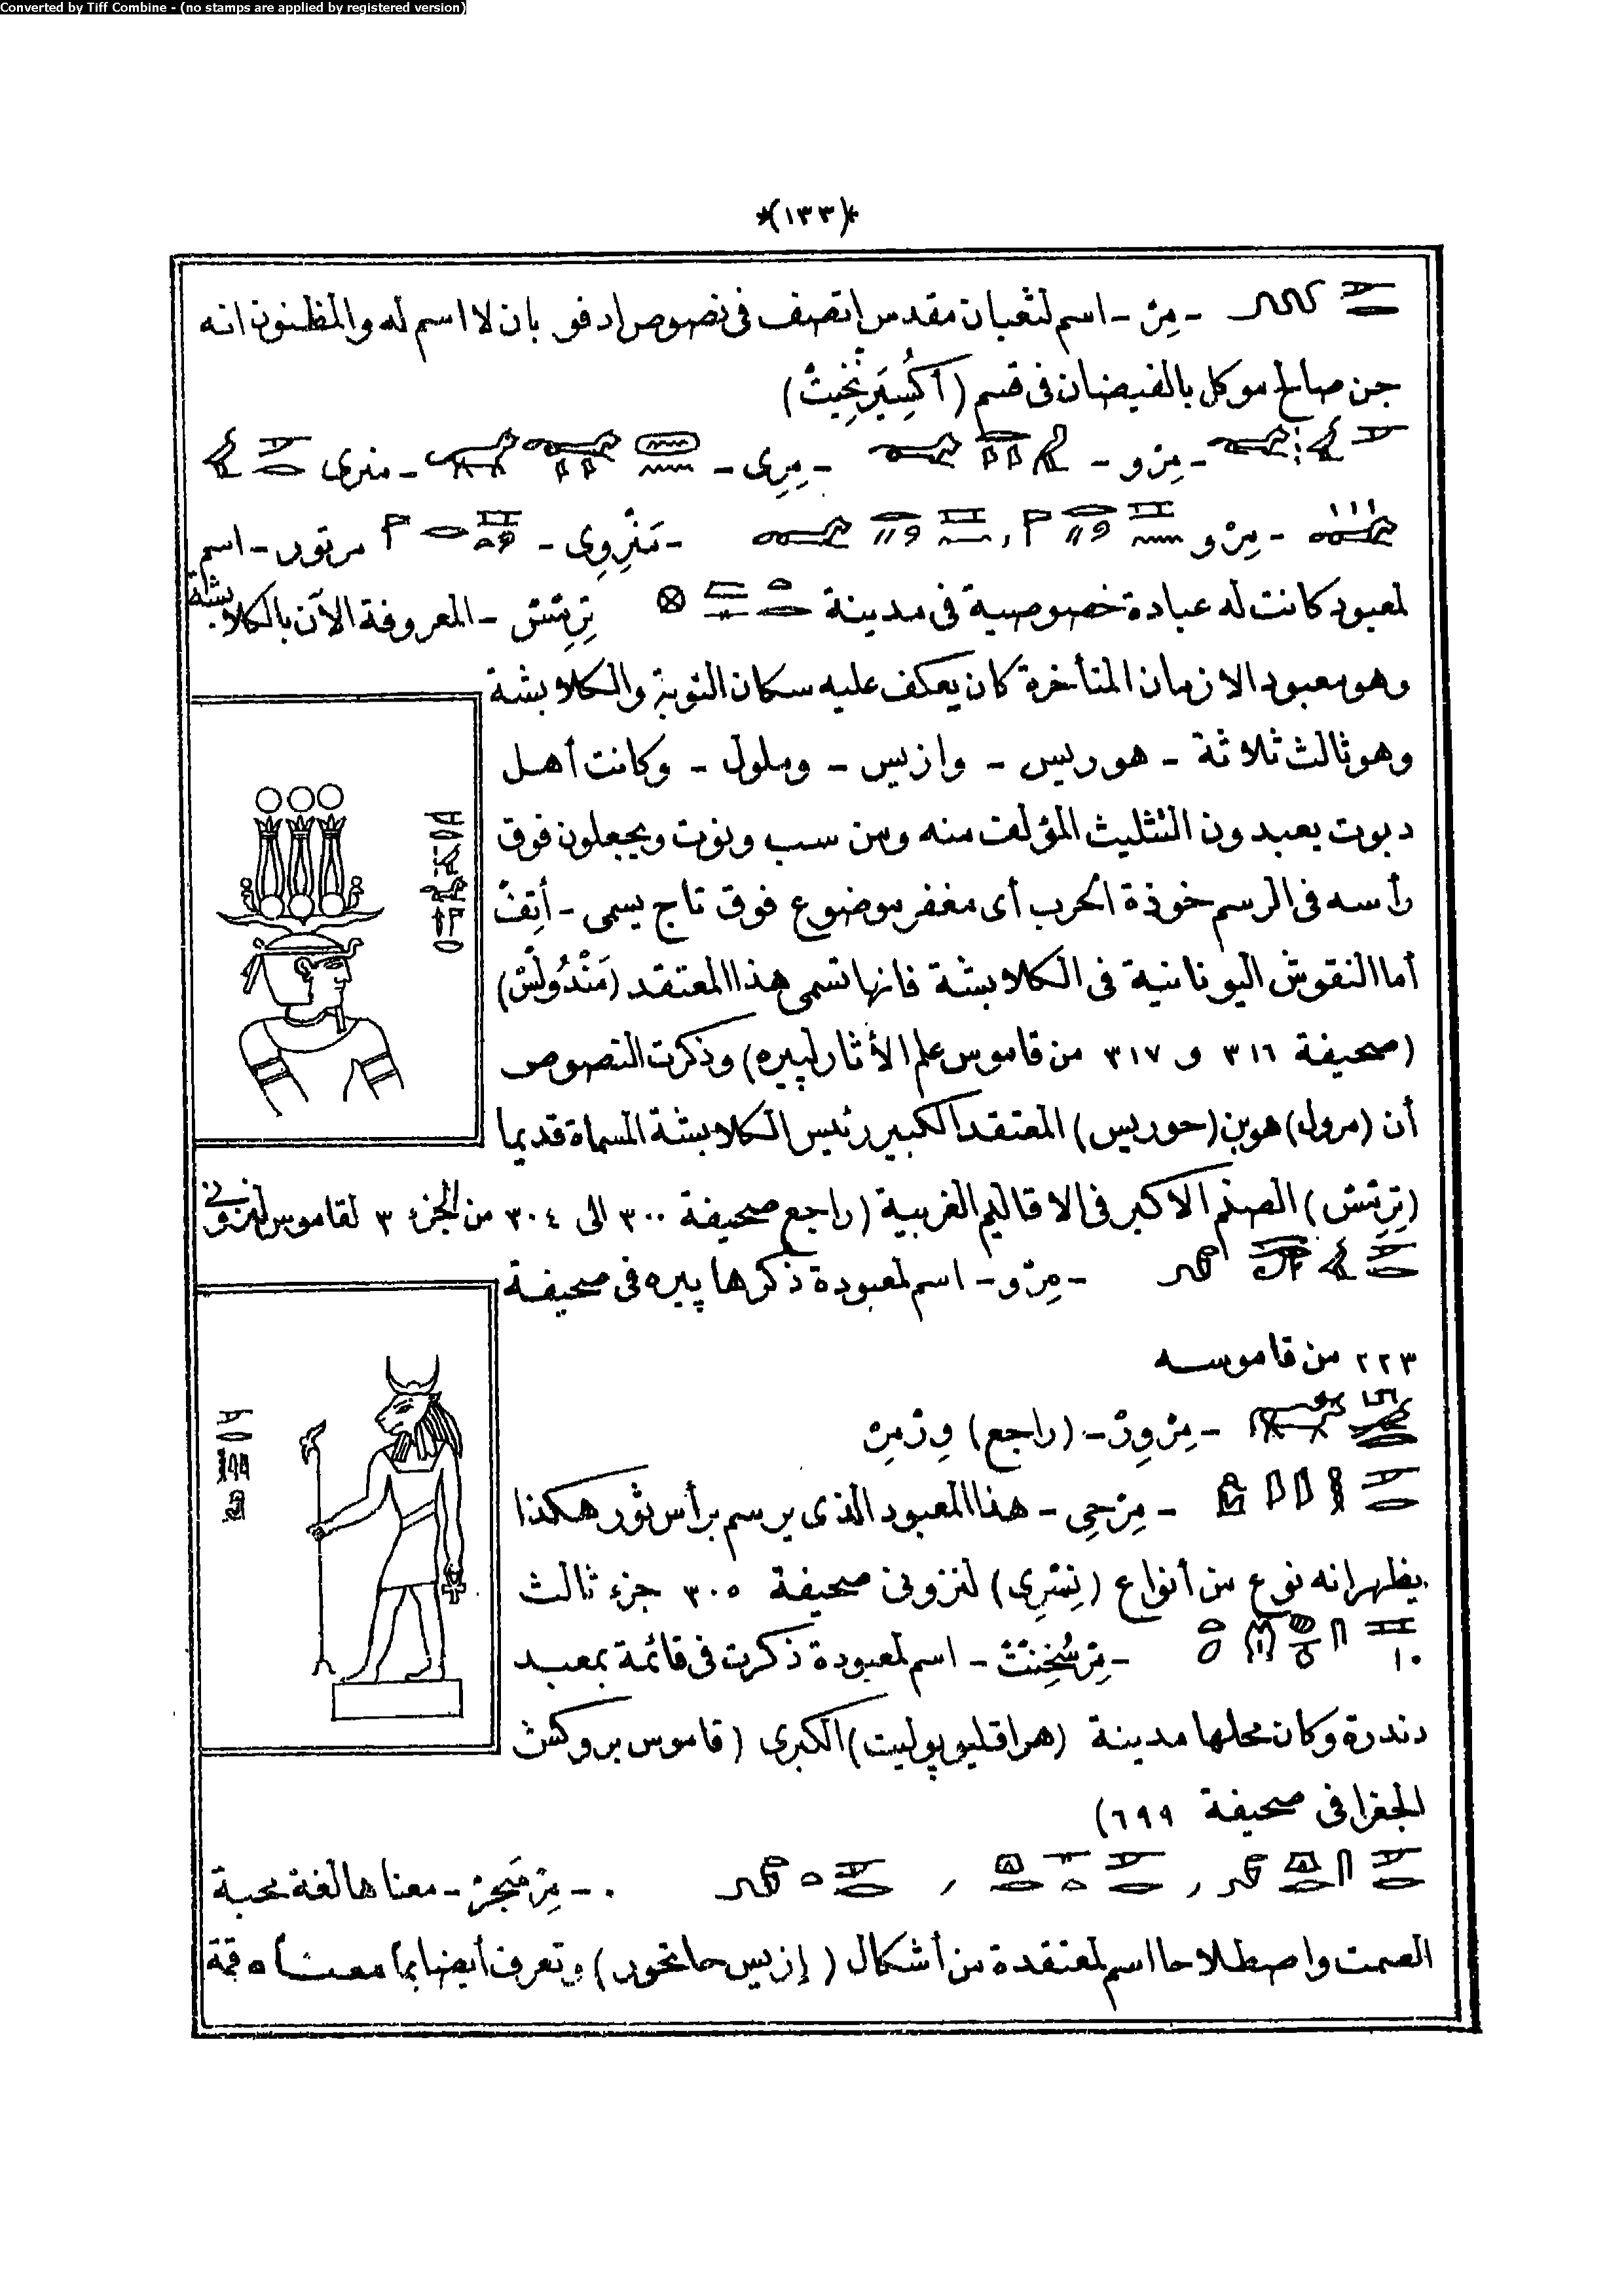 Converted by Tiff Combine - (no stamps are applied by registered version)
*(١٣٣)*
- مِرْ - اسم لثعبان مقدس اتصف فى نصوص ادفو بان لا اسم له والمظنون انه
جن صالح موكل بالفيضان فى قسم (أُكْسِيَرِنْخِيتْ)
- مِرْو - - مِرِى - - منرى
- مِرْو - مَنْرِوِى - مرتور - اسم
لمعبود كانت له عبادة خصوصية فى مدينة تِرِمْسْ - المعروفة الآن بالكلابشة
وهو معبود الازمان المتأخرة كان يعكف عليه سكان النوبة والكلابشة
وهو ثالث ثلاثة - هوريس - وازيس - وملول - وكانت أهل
دبوت يعبدون التثليث المؤلف منه ومن سب ونوت ويجعلون فوق
رأسه فى الرسم خوذة الحرب أى مغفر موضوع فوق تاج يسمى - أَتِفْ
أما النقوش اليونانية فى الكلابشة فانها تسمى هذا المعتقد (مَنْدُولَسْ)
(صحيفة ٣١٦ و ٣١٧ من قاموس علم الأثار لپيره) وذكرت النصوص
أن (مرول) هو بن (حوريس) المعتقد الكبير رئيس الكلابشة المسماة قديما
الصنم الاكبر فى الاقاليم الغربية (راجع صحيفة ٣٠٠ الى ٣٠٤ من الجزء ٣ لقاموس لنزونى
- مِرْو - اسم لمعبودة ذكرها پيره فى صحيفة
٢٢٣ من قاموسه
- مِرْوِرْ - (راجع) وِرْمِرْ
- مِرْحِى - هذا المعبود الذى يرسم برأس ثور هكذا
يظهر انه نوع من أنواع لنزونى صحيفة ٣٠٥ جزء ثالث
- مِرْسُخِنْتْ - اسم لمعبودة ذكرت فى قائمة بمعبد
دندرة وكان محلها مدينة (هراقليوپوليت) الكبرى (قاموس بروكش
الجغرافى صحيفة ٦٩٩)
- معناها لغة محبة
الصمت واصطلاحا اسم لمعتقدة من أشكال (إزيس حاتحور) وتعرف أيضا بما معناه قمة